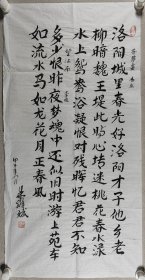 菩萨蛮 韦庄
洛阳城里春光好洛阳才子他乡老
柳暗魏王堤此时心转迷桃花春水渌
水上鸳鸯浴凝恨对残晖忆君君不知
望江南
多少恨昨夜梦魂中还似旧时游上苑车
如流水马如龙花月正春風